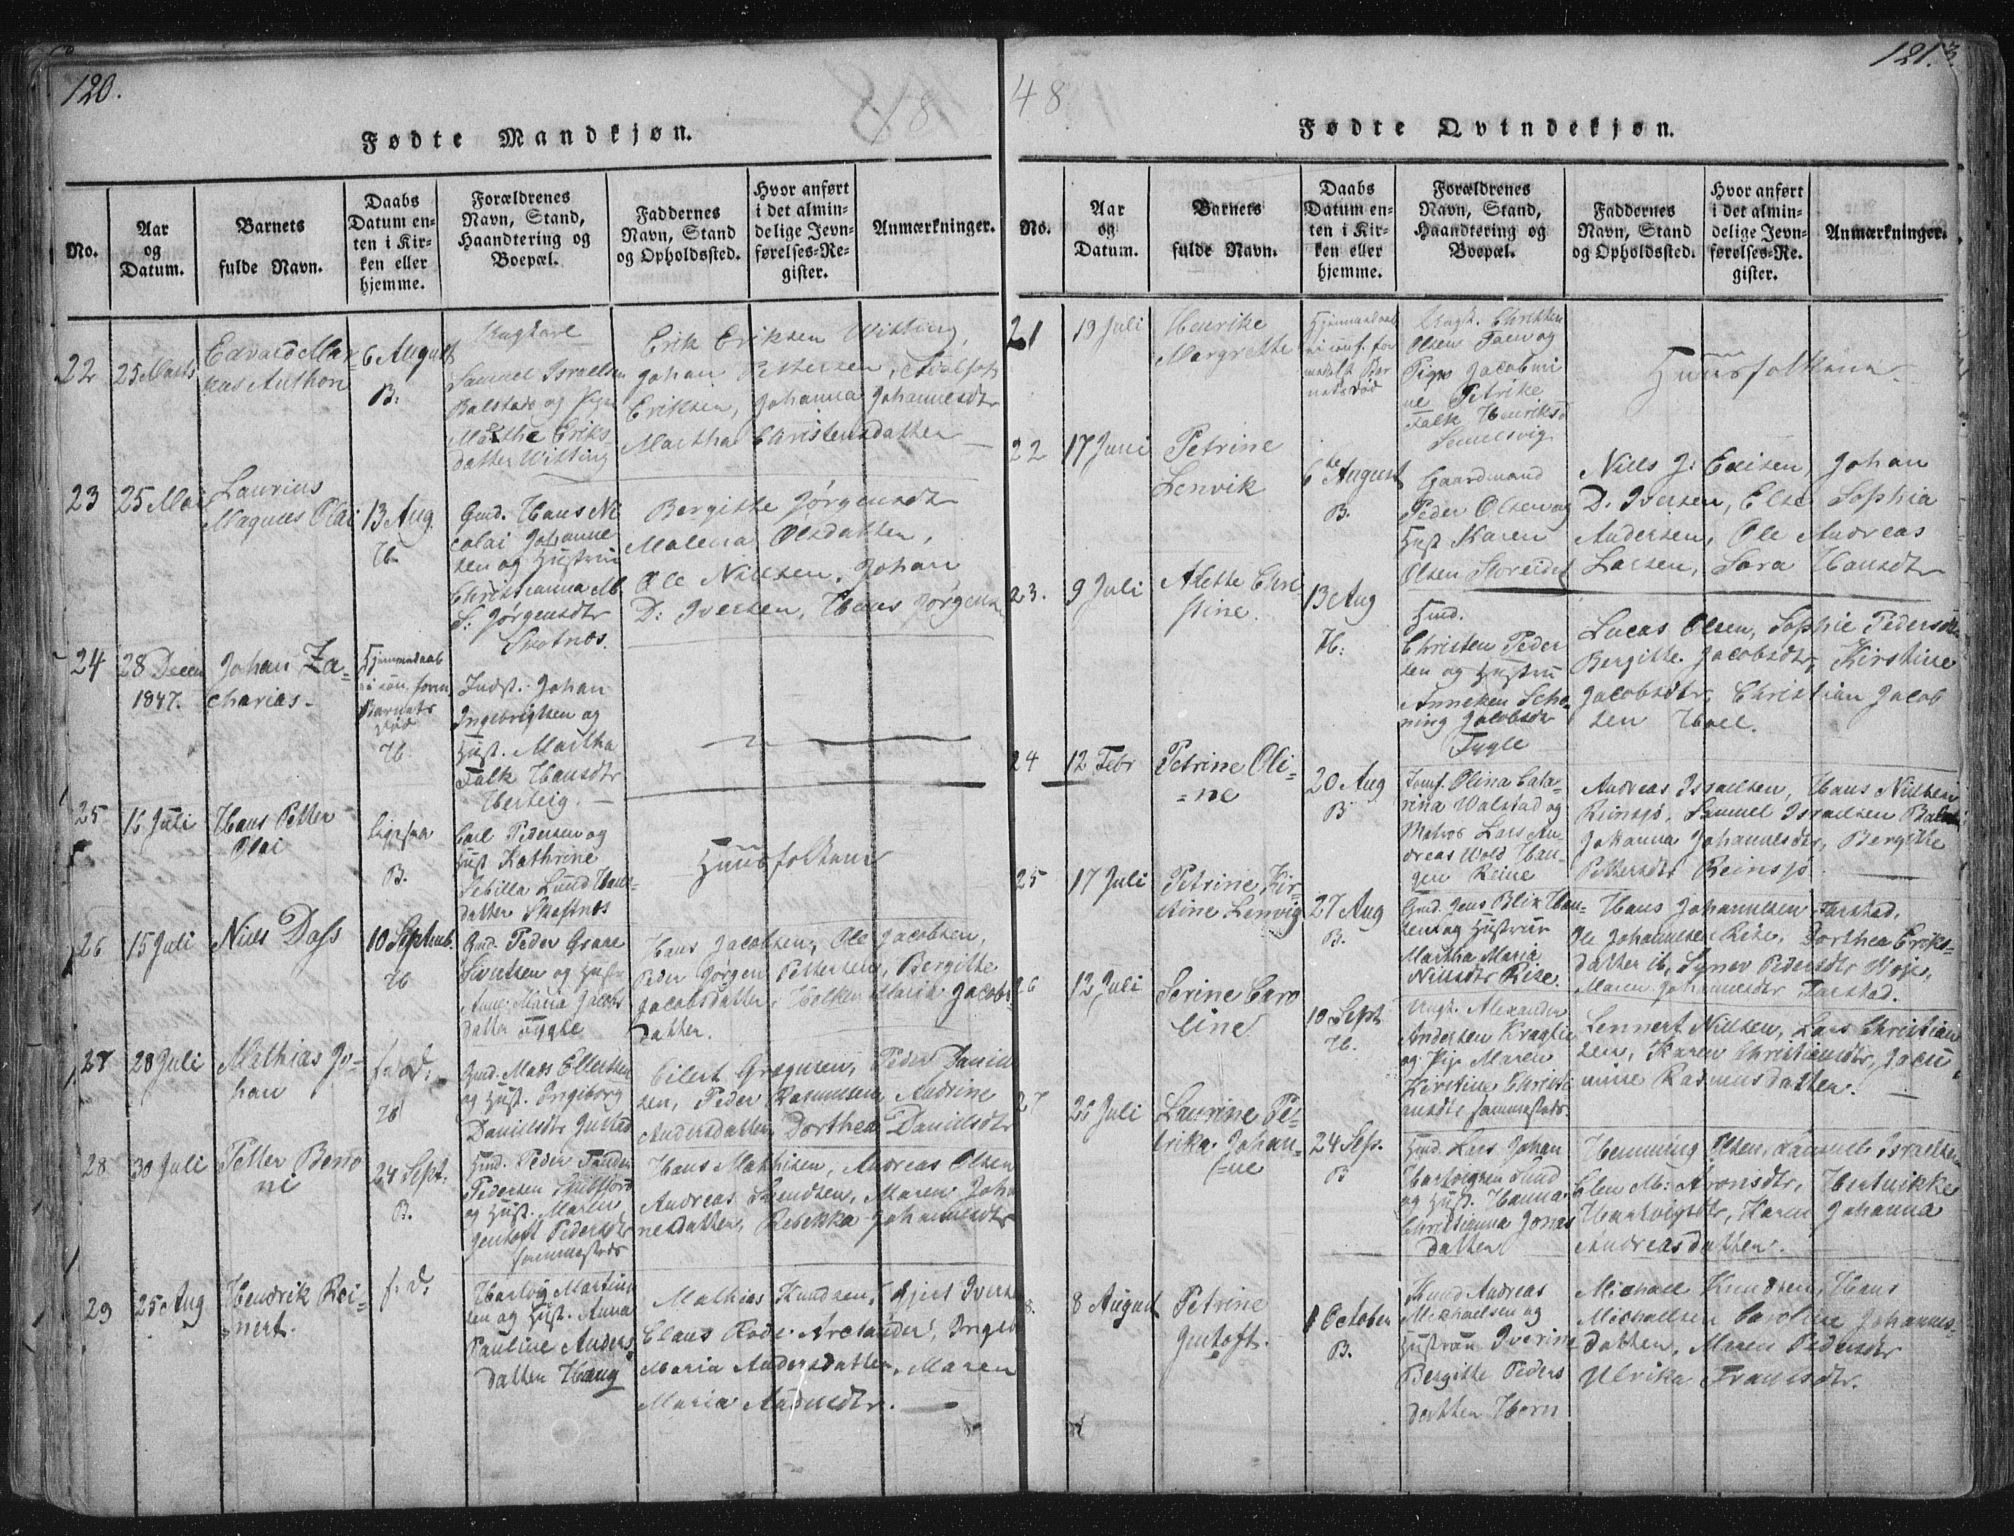 120.
18
Fødte Mandkjøn.
No.
Aar
og
Datum.
Barnets
fulde Navn.
Daabs
Datum en-
ten i Kir-
ken eller
hjemme.
Forældrenes
Navn, Stand,
Haandtering og
Boepæl.
Faddernes
Navn, Stand
og Opholdssted.
Hvor anført
i det almin-
delige Jevn-
førelses-Re-
gister.
Anmærkninger.
22
25 Marts
Edvard Mar-
kus Anthon
6 August
B.
Ungkarl
Samuel Israelsen
Balstad og Pige
Marthe Eriks
datter Witting
Erik Eriksen Witting,
Johan Pettersen, Adolf
Eriksen, Johanna Johannesdtr
Martha Christensdatter
23
25 Mai
Laurius
Magnus Olai
13 Aug.
H.
Gmd. Hans Ni
colai Johanne
sen og Hustru
Christianna M.
S. Jørgensdtr
Skotnæs.
Bergitte Jørgensdtr
Malena Olsdatter,
Ole Nielsen, Johan
D. Iversen, Hans Jørgens
24
28 Decem
1847.
Johan Za-
charias.
Hjemmedaab
formd
Barnets
død
H.
Indst. Johan
Ingebrigtsen og
Hust. Martha
Falk Hansdtr
25
16 Juli
Hans Petter
Olai
Ligesaa
B.
Carl Pedersen og
Hust Kathrine
Sebilla Lund Hans-
datter Skotnæs
Huusfolkene
26
15 Juli
Niels Dass
10 Septemb.
H
Gmd. Peder Graae
Sivertsen og Hust
Anne Maria Jacobs
datter Tygle
Hans Jacobsen, Ole Jacobsen,
Peder Jørgen Pettersen, Bergitte
Jacobsdatter, Maria Jacobs
datter.
27
28 Juli
Mathias Jo-
han
f. d.
H
Gmd. Mads Ellertsen
og Hust. Ingeborg
Danielsdtr Justad
Eilert Gregusen, Peder Daniel
sen, Peder Rasmusen, Andrine
Andersdatter, Dorthea Danielsdtr
28
30 Juli
Petter Berno
ni
24 Sept.
B.
Gmd. Peder
Pedersen
og Hust. Maren
Jentoft Pedersdtr
sammesteds
Hans Mathisen, Andreas Olsen
Andreas Svendsen, Maren Joha
nesdatter, Rebekka Johannesdtr
29
25 Aug
Hendrik Rei-
nert.
f. d.
Hartvig Martin
sen og Hust. Anna
Pauline Anders
datter Haug
Mathias Knudsen, Iverse
Claus Rode Arctander, Ingeb
Maria Andersdatter, Maren
Maria
121.
48
Fødte Qvindekjøn.
No.
Aar
og
Datum.
Barnets
fulde Navn.
Daabs
Datum en-
ten i Kir-
ken eller
hjemme.
Forældrenes
Navn, Stand,
Haandtering og
Boepæl.
Faddernes
Navn, Stand
og Opholdssted.
Hvor anført
i det almin-
delige Jevn-
førelses-Re-
gister.
Anmærkninger.
21
19 Juli
Henrike
Margrethe
Hjemmedaab
ei conf. for
medelst Bar
nets død
Ungk. Christen
Olsen og
Pige Jacobmi
ne Petrike
Falk Henriksd
Huusfolkene.
22
17 Juni
Petrine
Lenvik
6te August
B.
Gaardmand
Peder Olsen og
Hust Karen
Olsen
Niels J. Edisen, Johan
D. Iversen, Else Sophia
Andersen, Ole Andreas
Larsen, Sara Hansdtr
23.
9 Juli
Alette Chri
stine.
13 Aug
H.
Hmd.
Christen Peder
sen og Hustru
Anneken Sche-
ning Jacobsdr
Tygle
Lucas Olsen, Sophie Pedersdtr
Bergitte Jacobsdtr, Kirstine
Jacobsdtr, Christian Jacob
sen Hoel.
24
12 Febr
Petrine Oli-
ne
20 Aug
B
Jomf. Olina Cata-
rina Walstad og
Matros Lars An-
dreas Wold Han-
sen Reine
Andreas Israelsen, Hans Nielsen
Reinsjø, Samuel Israelsen
Johanna Johannesdtr, Bergitte
Pettersdtr Reinsjø.
25
17 Juli
Petrine Kir
stine Lenvig
27 Aug
B.
Gmd. Jens Blix Han-
sen og Hustru
Martha Maria
Nielsdtr Rise.
Hans Johannesen Farstad,
Ole Johannesen Rise, Dorthea Eriks-
datter ib, Synev Pedersdtr Woje,
Maren Johannesdtr Farstad.
26
12 Juli
Serine Caro
line
10 Sept
H.
Ungk. Alexander
Andersen Kragtin
og Pige Maren
Kirstine Christi
ansdtr sammesteds
Lennert Nielsen, Lars Christian
sen, Karen Christiansdtr, Jacu-
mine Rasmusdatter.
27
26 Juli
Laurine Pe-
trika Johan-
ne
24 Sep.
B
Hmd. Lars Johan
Hartvigsen Sund
og Hust. Hanna
Christianna Jonas
datter
Hemming Olsen, Samuel Israelsen
Elen M. Aronsdtr, Hentrikke
Hartvigsdtr, Karen Johanna
Andreasdatter.
28.
8 August
Petrine
Jentoft.
1 October
B.
Hmd Andreas
Michaelsen og
Hustru Iverine
Bergitte Peders
datter Horn
Michael Knudsen, Hans
Michaelsen Caroline Johannes-
datter, Maren Pedersdtr
Ulrikka Fransdtr.